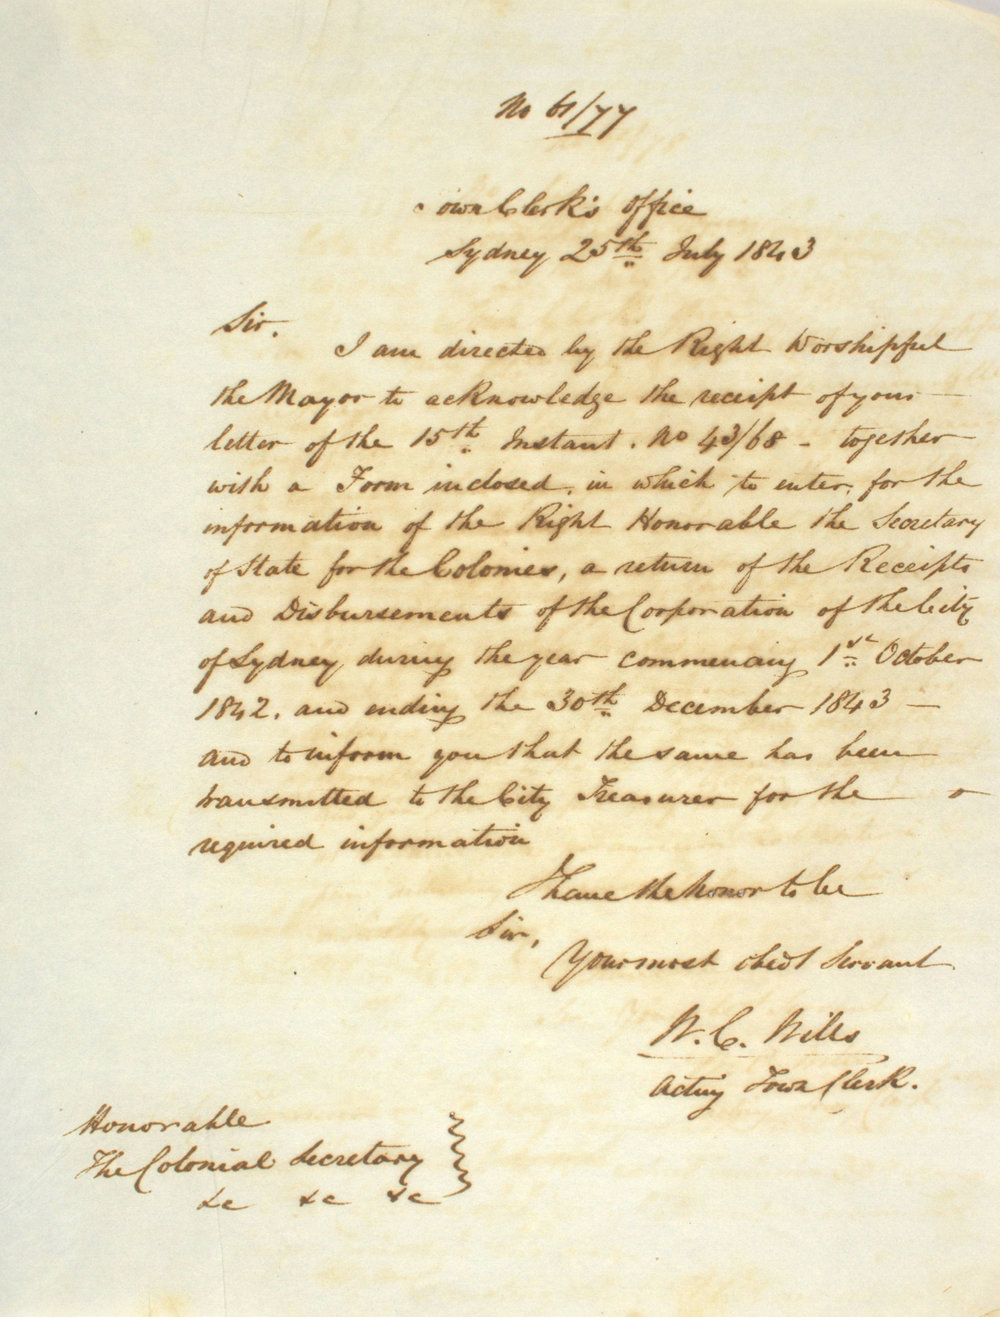 No 61/77
Town Clerk's Office
Sydney 25th July 1843
Sir.
I am directed by the Right Worshipful
the Mayor to acknowledge the receipt of your
letter of the 15th Instant. No 43/68 - together
with a Form inclosed, in which to enter, for the
information of the Right Honorable the Secretary
of State for the Colonies, a return of the Receipts
and Disbursements of the Corporation of the City
of Sydney during the year commencing 1st October
1842, and ending the 30th December 1843 —
and to inform you that the same has been
transmitted to the City Treasurer for the
required information
I have the honor to be
Sir,
Your most obedt Servant
W. C. Wills
Acting Town Clerk.
Honorable
The Colonial Secretary
&c &c &c